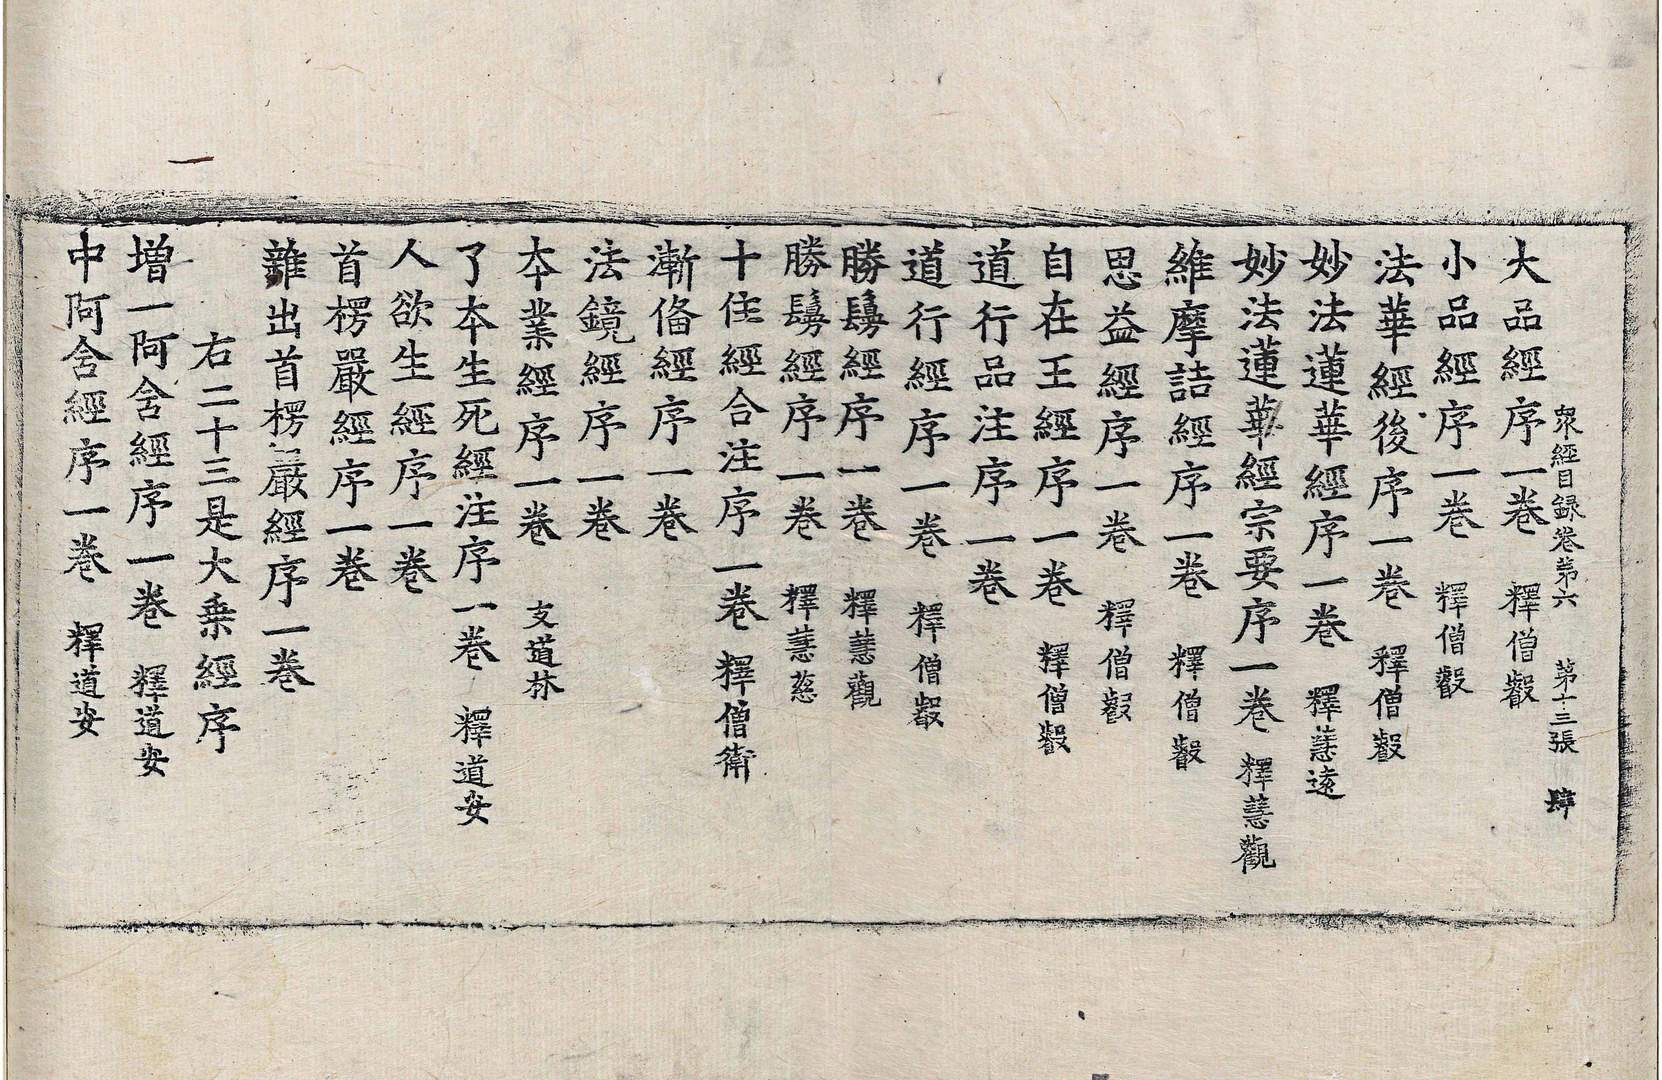 大品經序一卷 釋僧叡
衆經目録卷第六 第十三張 肆
小品經序一卷 釋僧叡
法華經後序一卷 釋僧叡
妙法蓮華經序一卷 釋慧遠
妙法蓮華經宗要序一卷 釋慧觀
維摩詰經序一卷 釋僧叡
思益經序一卷 釋僧叡
自在王經序一卷 釋僧叡
道行品注序一卷
道行經序一卷 釋僧叡
勝鬘經序一卷 釋慧觀
勝鬘經序一卷 釋慧慈
十住經合注序一卷 釋僧衛
漸俻經序一卷
法鏡經序一卷
本業經序一卷 支道林
了本生死經注序一卷 釋道安
人欲生經序一卷
首楞嚴經序一卷
雜出首楞嚴經序一卷
右二十三是大乗經序
增一阿含經序一卷 釋道安
中阿含經序一卷 釋道安